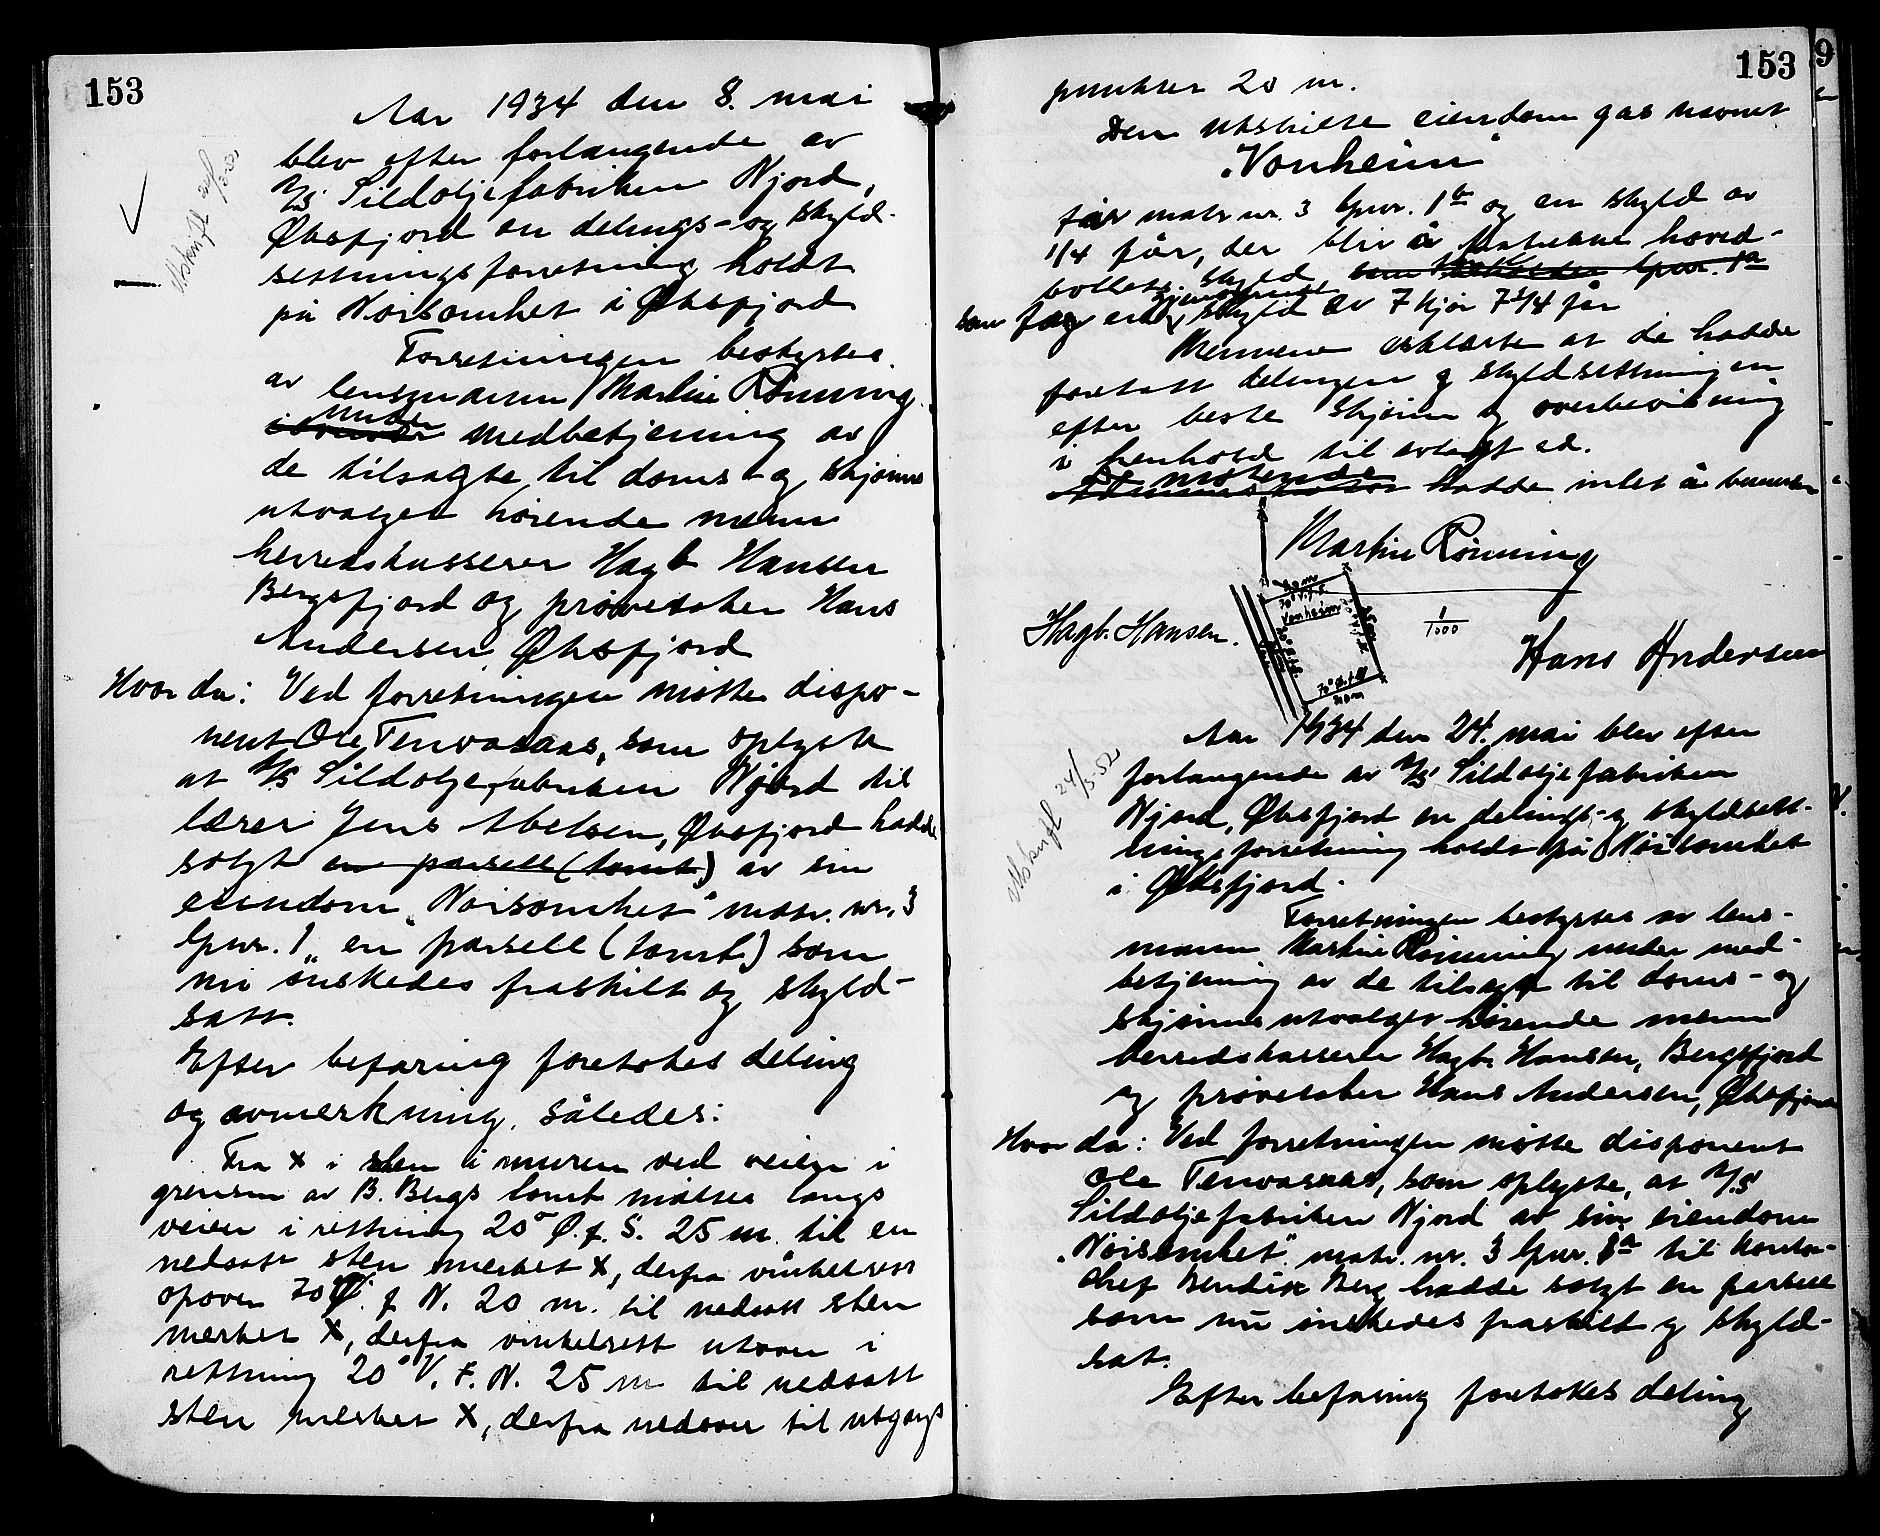 153
Utskrift 24/3-52
Aar 1934 den 8. mai
blev efter forlangende av
A/S Sildoljefabriken Njord,
Øksfjord en delings- og skyld-
settningsforretning holdt
på Nøisomhet i Øksfjord
Forretningen bestyrtes
av lensmann Martin Rønning
under medbetjening av
de tilsagte til doms- og skjønns
utvalget hørende menn
herredskasserer Hagb Hansen
Bergsfjord og prøvetaker Hans
Andersen, Øksfjord
Hvor da: Ved forretningen møtte dispo-
nent Ole Tenvaaaas, som oplyste
at A/S Sildoljefabriken Njord til
lærer Jens Abelsen, Øksfjord hadde
solgt en parsell (tomt) av sin
eiendom "Nøisomhet" matr. nr. 3
lpnr. 1, en parsell (tomt) som
nu ønskedes fraskilt og skyld-
satt.
Efter befaring foretokes deling
og avmerkning, således:
Fra X i sten i muren ved veien i
grensen av B. Bergs tomt måltes langs
veien i rettning 20° Ø.f.S. 25 m. til en
nedsatt sten merket X, derfra vinkelrett
opover 70° Ø. f N. 20 m. til nedsatt sten
merket X, derfra vinkelrett utover i
rettning 20° V. f. N. 25 m til nedsatt
sten merket X, derfra nedover til utgangs
153
9
punktet 20 m.
Den utskilte eiendom gas navnet
"Vonheim"
får matr nr. 3 lpnr. 1b og en skyld av
1/4 får, der blir å fratrekke hoved-
bollets skyld, som beholder lpnr. 1a
som får en gjenværende skyld av 7 kjør 7 3/4 får
Mennene erklærte at de hadde
foretatt delingen og skyldsettningen
efter beste skjønn og overbevisning
i henhold til avlagt ed.
De møtende hadde intet å bemerke
Martin Rønning
20 m
70° V.f.S.
Vonheim
1/1000
70° Ø.f.N
20 m
Hagb. Hansen.
Hans Andersen
Utskrift 24/3-52
Aar 1934 den 24. mai blev efter
forlangende av A/S Sildoljefabriken
Njord, Øksfjord en delings- og skyldsett-
ningsforretning holdt på Nøisomhet
i Øksfjord.
Forretningen bestyrtes av lens-
mann Martin Rønning under med-
betjening av de tilsagte til doms- og
skjønnsutvalget hørende menn
herredskasserer Hagb. Hansen, Bergsfjord
og prøvetaker Hans Andersen, Øksfjord
Hvor da: Ved forretningen møtte disponent
Ole Tenvaaaas, som oplyste, at A/S
Sildoljefabriken Njord av sin eiendom
"Nøisomhet" matr. nr. 3 lpnr. 1a til kontor-
chef Bendix Berg hadde solgt en parsell
som nu ønskedes fraskilt og skyld-
sat.
Efter befaring foretokes deling